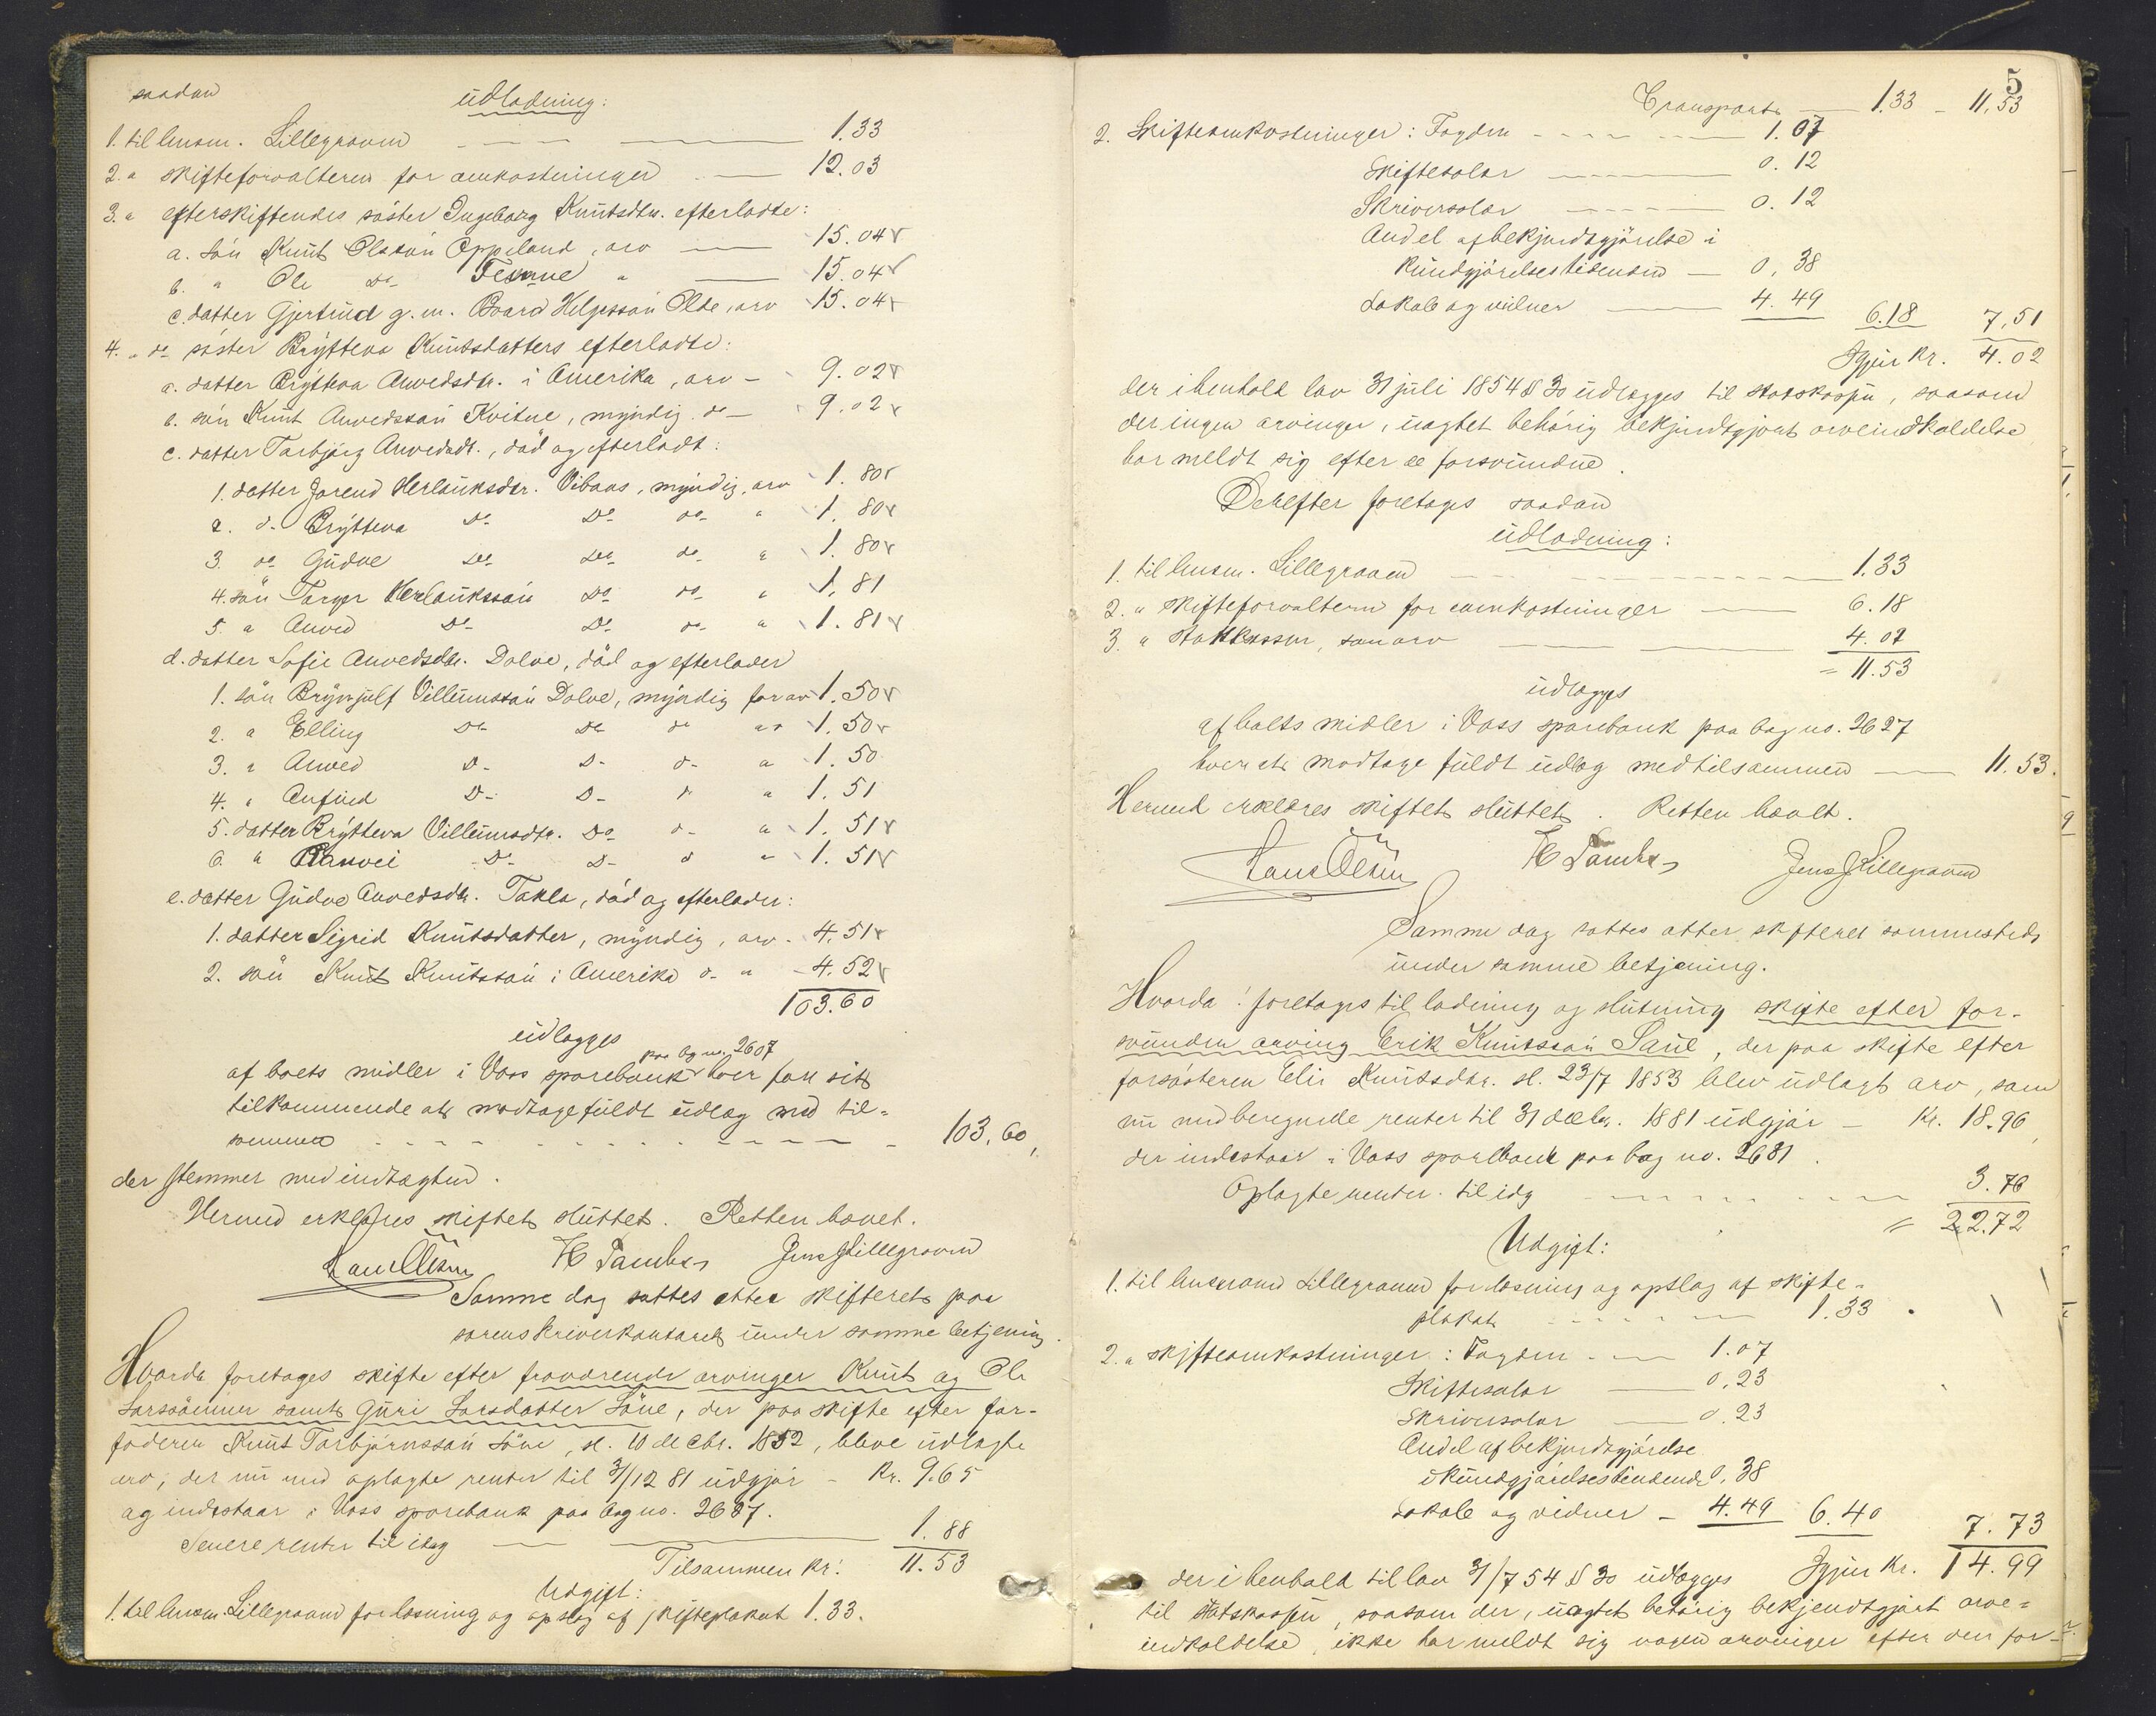 saadan
udlodning:
1. til lensm. Lillegraven 1.33
2. " skifteforvalteren for omkostninger 12.03
3. " efterskiftendes søster Ingeborg Knutsdtr. efterladte:
a. søn Knut Olsson Oppeland, arv 15.04
b. " Ole do Femne " 15.04
c. datter Gjertrud g. m. Baard Helgesson Olde, arv 15.04
4. " do søster Brytteva Knutsdatters efterladte:
a. datter Bryttva Anvedsdtr. i Amerika, arv - 9.02
b. søn Knut Anvedsson Kvitne, myndig do - 9.02
c. datter Torbjørg Anvedsdt., død og efterladt:
1. datter Jorend Herlauksdtr. Vibaas, myndig, arv 1.80
2. do Bryttva do do do " 1.80
3. do Gudve do do do " 1.80
4. søn Torger Herlauksson do do " 1.81
5. " Anved do do do " 1.81
d. datter Sofie Anvedsdtr. Dolve, død og efterlader
1. søn Brynjulf Villumsson Dolve, myndig for arv 1.50
2. " Elling do do do arv 1.50
3. " Anved do do do " 1.50
4. " Anfind do do do " 1.51
5. datter Bryttva Villumsdtr. do do " 1.51
6. " Ranvei do do do " 1.51
e. datter Gudve Anvedsdtr. Takla, død og efterlader:
1. datter Sigrid Knutsdatter, myndig, arv - 4.51
2. søn Knut Knutsson i Amerika do " - 4.52
103.60
udlægges
paa bog no. 2607
af boets midler i Voss sparebank hver faar sit
tilkommende at modtage fuldt udlæg med til=
sammen - 103.60,
der stemmer med indtægten.
Hermed erklæres skiftet sluttet. Retten hævet.
Hans Olsen H Sambs Jens J Lillegraven
Samme dag sattes atter skifteret paa
sorenskriverkontoret under samme betjening.
Hvorda foretages skifte efter fraværende arvinger Knut og Ole
Larssønner samt Guri Larsdatter Løne, der paa skifte efter far-
faderen Knut Torbjørnsson Løne, sl. 10 decbr. 1852, bleve udlagte
arv, der nu med oplagte renter til 31/12 81 udgjør - Kr. 9.65
og indestaar i Voss sparebank paa bog no. 2627.
Senere renter til idag 1.88
Tilsammen kr. 11.53
Udgift:
1. til lensm. Lillegraven for læsning og opslag af skifteplakat 1.33.
5
Transport 1.33 - 11.53
2. Skifteomkostninger: Fogden 1.07
Skiftesalær 0.12
Skriversalær 0.12
Andel af bekjendtgjørelse i
Kundgjørelsestidenden 0.38
Lokale og vidner 4.49 6.18 7.51
Igjen kr. 4.02
der i henhold lov 31 juli 1854 § 30 udlægges til statskassen, saasom
der ingen arvinger, uagtet behørig bekjendtgjort arveindkaldelse
har meldt sig efter de forsvundne.
Derefter foretages saadan
udlodning:
1. til lensm. Lillegraven 1.33
2. " skifteforvalteren for omkostninger 6.18
3. " statskassen, som arv 4.02
= 11.53
udlægges
af boets midler i Voss sparebank paa bog no. 2627
hver at modtage fuldt udlæg med tilsammen 11.53.
Hermed erklæres skiftet sluttet. Retten hævet.
Hans Olsen H Sambs Jens J Lillegraven
Samme dag sattes atter skifteret sammesteds
under samme betjening.
Hvorda! foretages til lodning og slutning skifte efter for-
svunden arving Erik Knutsson Saue, der paa skifte efter
farsøsteren Elis Knutsdtr. sl. 23/7 1853 blev udlagt arv, som
nu medberegnede renter til 31 decbr. 1881 udgjør - Kr. 18.96,
der indestaar i Voss sparebank paa bog no. 2681.
Oplagte renter til idag 3.76
= 22.72
Udgift:
1. til lensmand Lillegraven for læsning og opslag af skifte-
plakat 1.33
2. " skifteomkostninger: Fogden 1.07
Skiftesalær 0.23
Skriversalær 0.23
Andel af bekjendtgjørelse
i kundgjørelsestidende 0.38
Lokale og vidner - 4.49 6.40 7.73
Igjen Kr. 14.99
der i henhold til lov 31/7 54 § 30 udlægges
til statskassen, saasom der, uagtet behørig bekjendtgjort arve=
indkaldelse, ikke har meldt sig nogen arvinger efter den for-